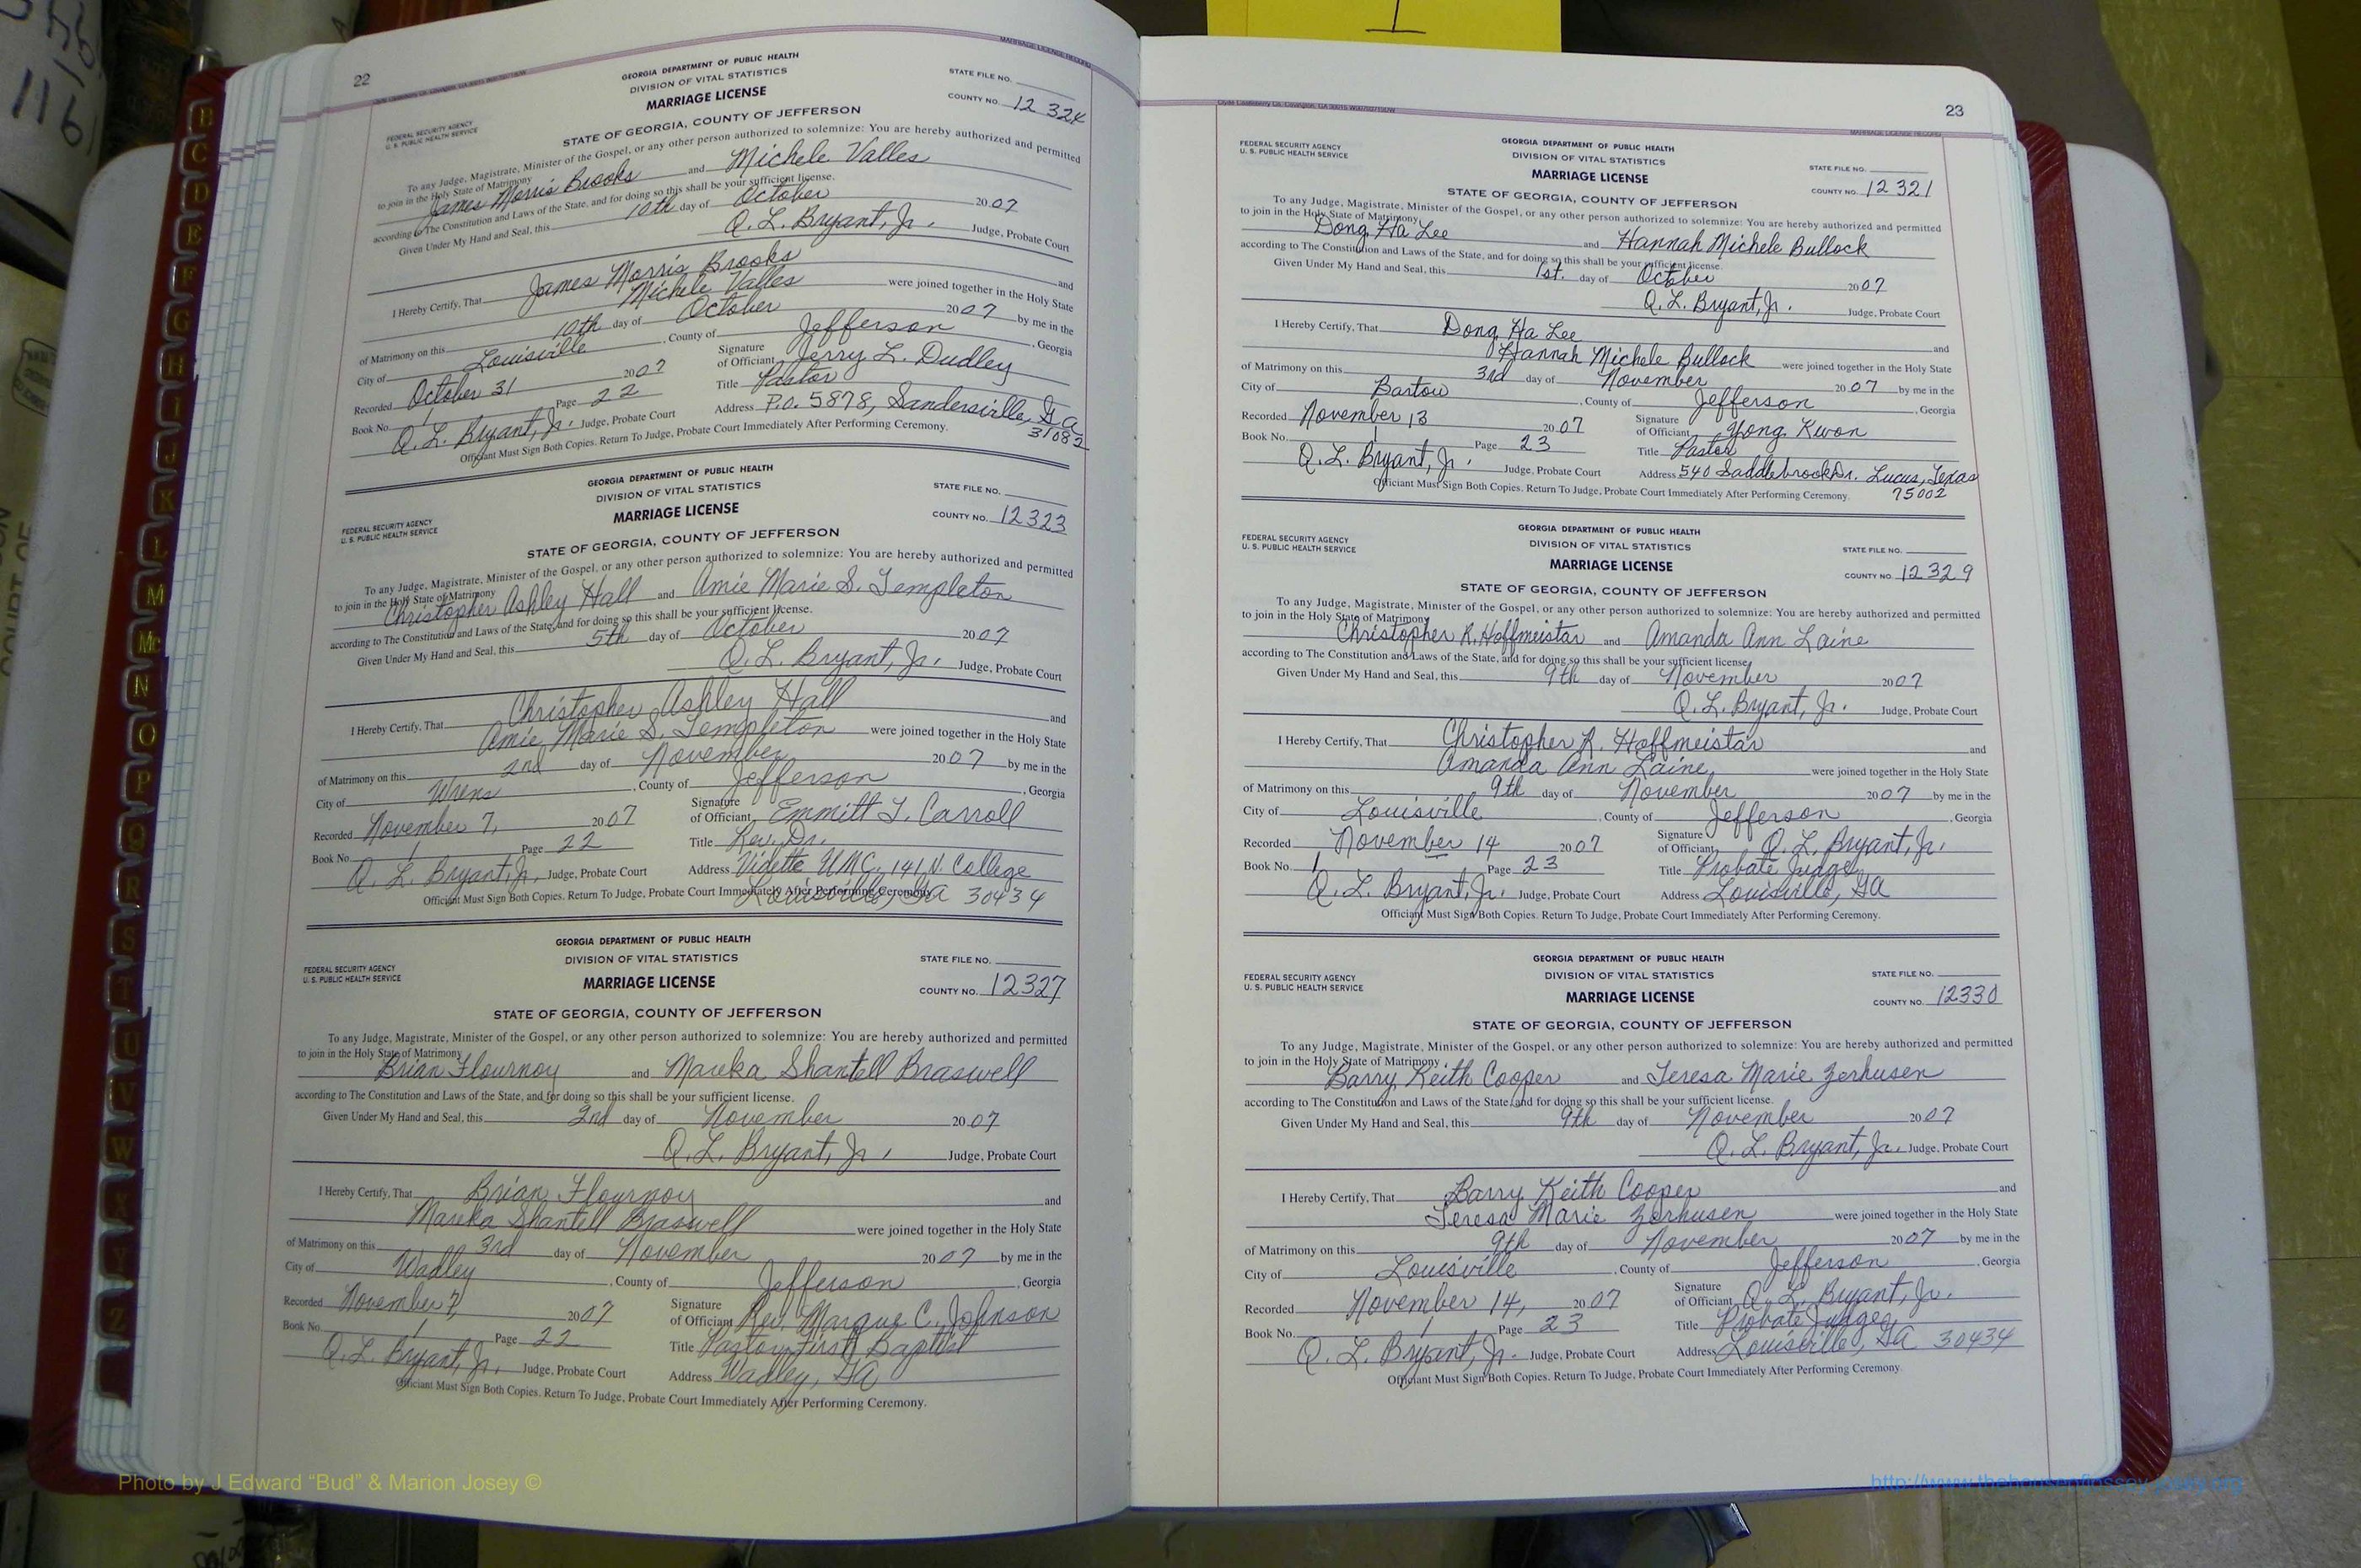 22
MARRIAGE LICENSE RECORD
GEORGIA DEPARTMENT OF PUBLIC HEALTH
DIVISION OF VITAL STATISTICS
MARRIAGE LICENSE
STATE FILE NO.
COUNTY NO. 12 324
FEDERAL SECURITY AGENCY
U. S. PUBLIC HEALTH SERVICE
STATE OF GEORGIA, COUNTY OF JEFFERSON
To any Judge, Magistrate, Minister of the Gospel, or any other person authorized to solemnize: You are hereby authorized and permitted
to join in the Holy State of Matrimony
James Morris Brooks and Michele Valles
according to The Constitution and Laws of the State, and for doing so this shall be your sufficient license.
Given Under My Hand and Seal, this 10th day of October 2007
Q. L. Bryant, Jr. Judge, Probate Court
I Hereby Certify, That James Morris Brooks and
Michele Valles were joined together in the Holy State
of Matrimony on this 10th day of October 2007 by me in the
City of Louisville, County of Jefferson, Georgia
Recorded October 31 2007
Signature of Official Jerry L. Dudley
Book No. 1 Page 22
Title Pastor
Q. L. Bryant, Jr. Judge, Probate Court
Address P.O. 5878, Sandersville, Ga
31082
Officiant Must Sign Both Copies. Return To Judge, Probate Court Immediately After Performing Ceremony.
GEORGIA DEPARTMENT OF PUBLIC HEALTH
DIVISION OF VITAL STATISTICS
MARRIAGE LICENSE
STATE FILE NO.
COUNTY NO. 12323
FEDERAL SECURITY AGENCY
U. S. PUBLIC HEALTH SERVICE
STATE OF GEORGIA, COUNTY OF JEFFERSON
To any Judge, Magistrate, Minister of the Gospel, or any other person authorized to solemnize: You are hereby authorized and permitted
to join in the Holy State of Matrimony
Christopher Ashley Hall and Amie Marie S. Templeton
according to The Constitution and Laws of the State, and for doing so this shall be your sufficient license.
Given Under My Hand and Seal, this 5th day of October 2007
Q. L. Bryant, Jr. Judge, Probate Court
I Hereby Certify, That Christopher Ashley Hall and
Amie Marie S. Templeton were joined together in the Holy State
of Matrimony on this 2nd day of November 2007 by me in the
City of Wrens, County of Jefferson, Georgia
Recorded November 7, 2007
Signature of Official Emmitt T. Carroll
Book No. 1 Page 22
Title Rev. Dr.
Q. L. Bryant, Jr. Judge, Probate Court
Address Vidette UMC, 141 N. College
Louisville, Ga 30434
Officiant Must Sign Both Copies. Return To Judge, Probate Court Immediately After Performing Ceremony.
GEORGIA DEPARTMENT OF PUBLIC HEALTH
DIVISION OF VITAL STATISTICS
MARRIAGE LICENSE
STATE FILE NO.
COUNTY NO. 12327
FEDERAL SECURITY AGENCY
U. S. PUBLIC HEALTH SERVICE
STATE OF GEORGIA, COUNTY OF JEFFERSON
To any Judge, Magistrate, Minister of the Gospel, or any other person authorized to solemnize: You are hereby authorized and permitted
to join in the Holy State of Matrimony
Brian Flournoy and Mareka Shantell Braswell
according to The Constitution and Laws of the State, and for doing so this shall be your sufficient license.
Given Under My Hand and Seal, this 2nd day of November 2007
Q. L. Bryant, Jr. Judge, Probate Court
I Hereby Certify, That Brian Flournoy and
Mareka Shantell Braswell were joined together in the Holy State
of Matrimony on this 3rd day of November 2007 by me in the
City of Wadley, County of Jefferson, Georgia
Recorded November 7, 2007
Signature of Official Rev. Marque C. Johnson
Book No. 1 Page 22
Title Pastor First Baptist
Q. L. Bryant, Jr. Judge, Probate Court
Address Wadley, GA
Officiant Must Sign Both Copies. Return To Judge, Probate Court Immediately After Performing Ceremony.
23
MARRIAGE LICENSE RECORD
FEDERAL SECURITY AGENCY
U. S. PUBLIC HEALTH SERVICE
GEORGIA DEPARTMENT OF PUBLIC HEALTH
DIVISION OF VITAL STATISTICS
MARRIAGE LICENSE
STATE FILE NO.
COUNTY NO. 12 321
STATE OF GEORGIA, COUNTY OF JEFFERSON
To any Judge, Magistrate, Minister of the Gospel, or any other person authorized to solemnize: You are hereby authorized and permitted
to join in the Holy State of Matrimony
Dong Ha Lee and Hannah Michele Bullock
according to The Constitution and Laws of the State, and for doing so this shall be your sufficient license.
Given Under My Hand and Seal, this 1st. day of October 2007
Q. L. Bryant, Jr. Judge, Probate Court
I Hereby Certify, That Dong Ha Lee and
Hannah Michele Bullock were joined together in the Holy State
of Matrimony on this 3rd day of November 2007 by me in the
City of Bartow, County of Jefferson, Georgia
Recorded November 13 2007
Signature of Official Yong Kwon
Book No. 1 Page 23
Title Pastor
Q. L. Bryant, Jr. Judge, Probate Court
Address 540 Saddlebrook Dr. Lucus, Texas
75002
Officiant Must Sign Both Copies. Return To Judge, Probate Court Immediately After Performing Ceremony.
FEDERAL SECURITY AGENCY
U. S. PUBLIC HEALTH SERVICE
GEORGIA DEPARTMENT OF PUBLIC HEALTH
DIVISION OF VITAL STATISTICS
MARRIAGE LICENSE
STATE FILE NO.
COUNTY NO. 12329
STATE OF GEORGIA, COUNTY OF JEFFERSON
To any Judge, Magistrate, Minister of the Gospel, or any other person authorized to solemnize: You are hereby authorized and permitted
to join in the Holy State of Matrimony
Christopher R. Hoffmeistar and Amanda Ann Laine
according to The Constitution and Laws of the State, and for doing so this shall be your sufficient license.
Given Under My Hand and Seal, this 9th day of November 2007
Q. L. Bryant, Jr. Judge, Probate Court
I Hereby Certify, That Christopher R. Hoffmeistar and
Amanda Ann Laine were joined together in the Holy State
of Matrimony on this 9th day of November 2007 by me in the
City of Louisville, County of Jefferson, Georgia
Recorded November 14 2007
Signature of Official Q. L. Bryant, Jr.
Book No. 1 Page 23
Title Probate Judge
Q. L. Bryant, Jr. Judge, Probate Court
Address Louisville, GA
Officiant Must Sign Both Copies. Return To Judge, Probate Court Immediately After Performing Ceremony.
FEDERAL SECURITY AGENCY
U. S. PUBLIC HEALTH SERVICE
GEORGIA DEPARTMENT OF PUBLIC HEALTH
DIVISION OF VITAL STATISTICS
MARRIAGE LICENSE
STATE FILE NO.
COUNTY NO. 12330
STATE OF GEORGIA, COUNTY OF JEFFERSON
To any Judge, Magistrate, Minister of the Gospel, or any other person authorized to solemnize: You are hereby authorized and permitted
to join in the Holy State of Matrimony
Barry Keith Cooper and Teresa Marie Zerhusen
according to The Constitution and Laws of the State, and for doing so this shall be your sufficient license.
Given Under My Hand and Seal, this 9th day of November 2007
Q. L. Bryant, Jr. Judge, Probate Court
I Hereby Certify, That Barry Keith Cooper and
Teresa Marie Zerhusen were joined together in the Holy State
of Matrimony on this 9th day of November 2007 by me in the
City of Louisville, County of Jefferson, Georgia
Recorded November 14, 2007
Signature of Official Q. L. Bryant, Jr.
Book No. 1 Page 23
Title Probate Judge
Q. L. Bryant, Jr. Judge, Probate Court
Address Louisville, GA 30434
Officiant Must Sign Both Copies. Return To Judge, Probate Court Immediately After Performing Ceremony.
C
D
E
F
G
H
I
J
K
L
M
Mc
N
O
P
Q
R
S
T
U
V
W
X
Y
Z
116
Photo by J Edward “Bud” & Marion Josey ©